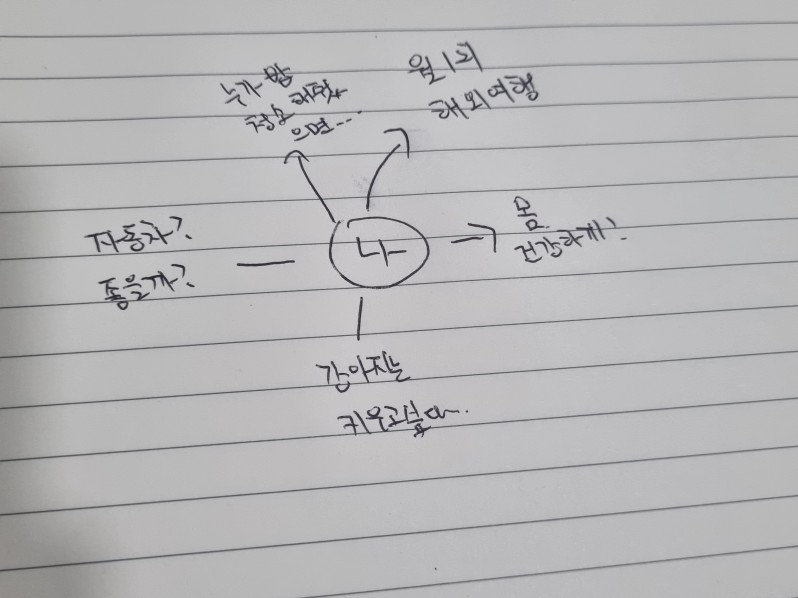 누가 밥
청소 해줬
으면...
월 1회
해외여행
자동차?
좋을까?
나
몸
건강하게!
강아지는
키우고싶다..